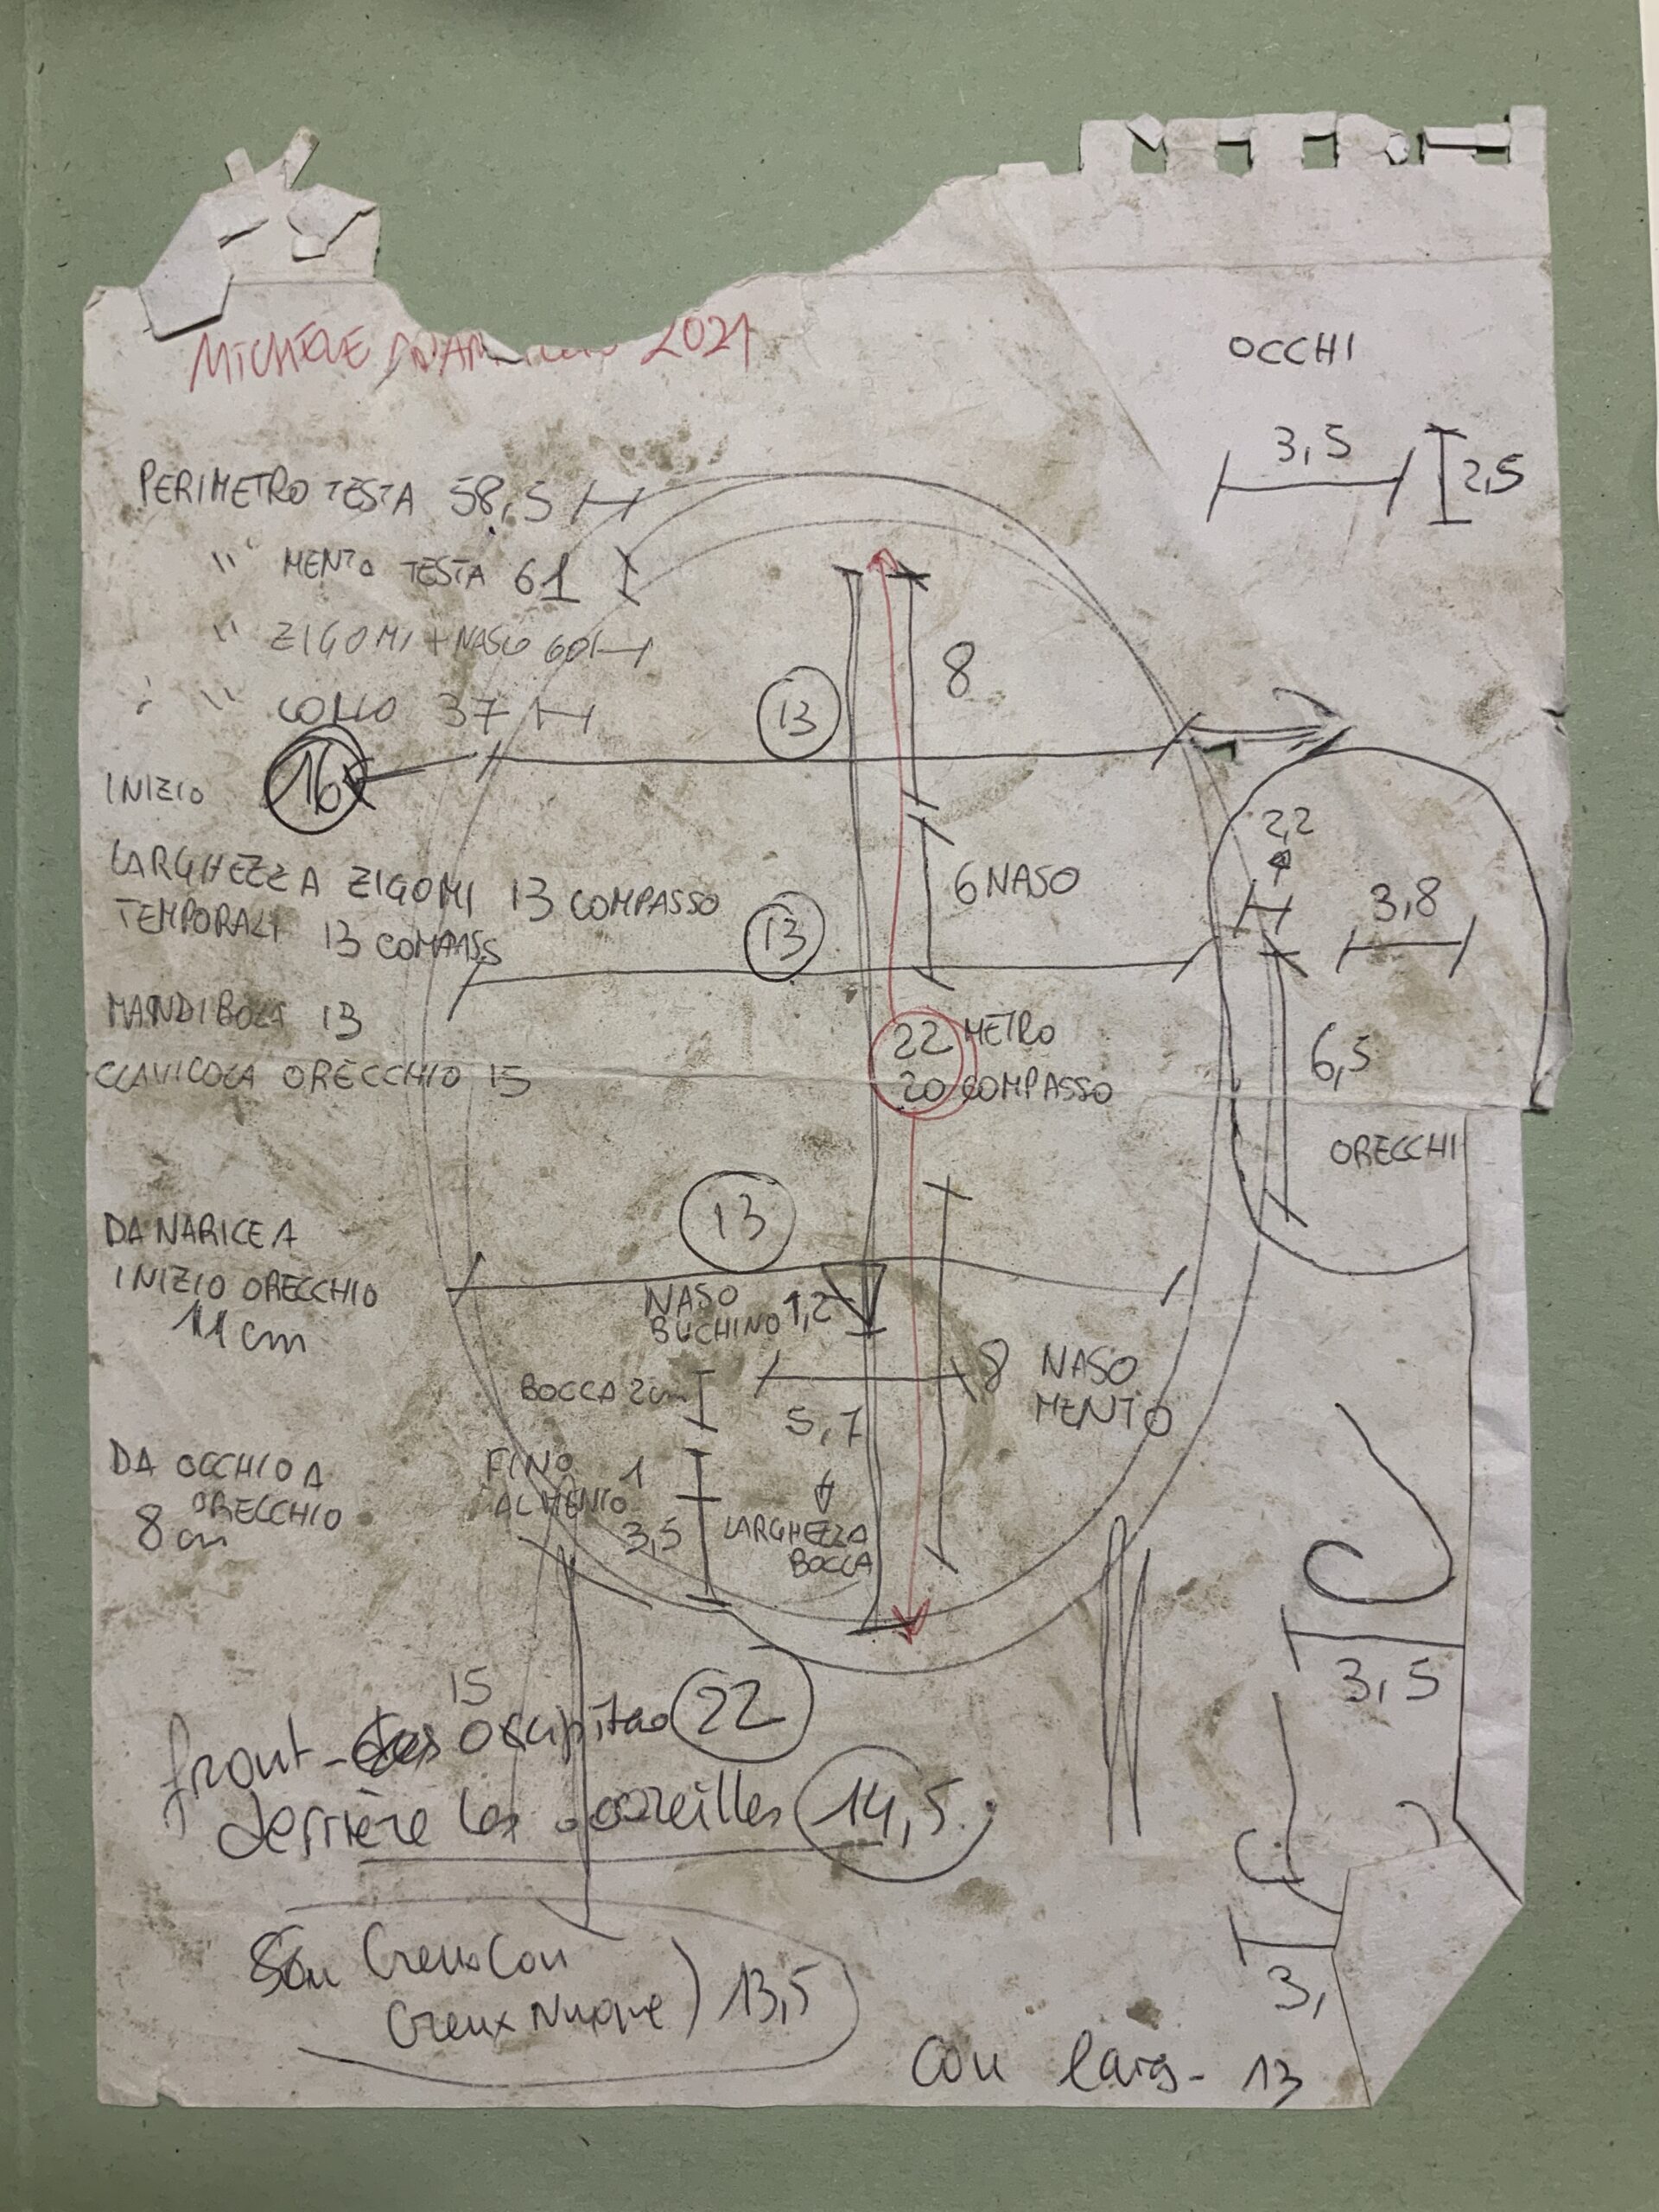 MICHELE 2021
OCCHI
3,5
2,5
PERIMETRO TESTA 58,5
" MENTO TESTA 61
" ZIGOMI + NASO 60
" COLLO 37
13
8
INIZIO 16
LARGHEZZA ZIGOMI 13 COMPASSO
TEMPORALI 13 COMPASS
13
6 NASO
2,2
3,8
MANDIBOLA 13
CLAVICOLA ORECCHIO 15
22 METRO
20 COMPASSO
6,5
ORECCHI
DA NARICE A
INIZIO ORECCHIO
11 cm
13
NASO
BUCHINO 1,2
BOCCA 2cm
5,7
8 NASO
MENTO
DA OCCHIO A
ORECCHIO
8 cm
FINO
AL MENTO
1
3,5
LARGHEZZA
BOCCA
3,5
15
front - occipitao 22
derrière les oreilles 14,5
Creux Cou
Creux Nuque) 13,5
3,
Cou larg- 13